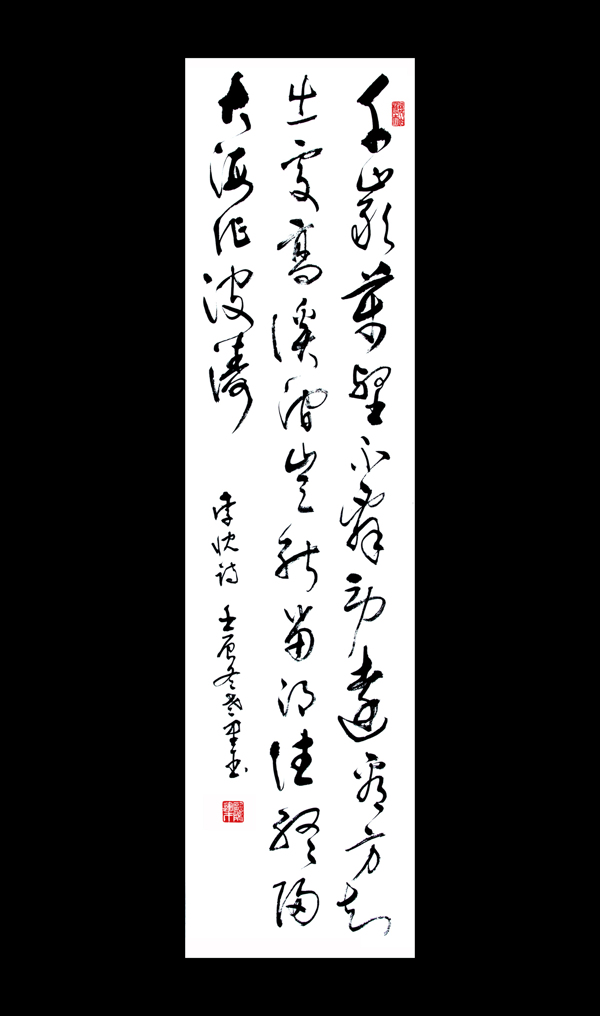 千巖萬壑不辭勞遠看方知
出處高溪澗豈能留得住終歸
大海作波濤
李忱詩 壬辰冬